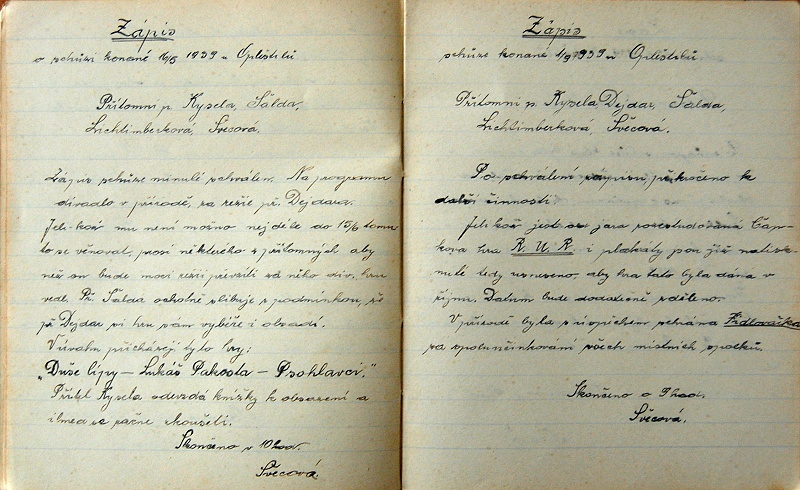 Zápis
o schůzi konané 16/5 1939 u Oplěštilů.
Přítomni p. Kysela, Šalda,
Lichtimberková, Švecová.
Zápis schůze minulé schválen. Na programu
divadlo v přírodě, za režie př. Dejdara.
Jelikož mu není možno nejdéle do 15/6 tomu
to se věnovat, prosí některého z přítomných aby
než on bude moci režii převzíti za něho div. hru
vedl. Př. Šalda ochotně slibuje s podmínkou, že
př. Dejdar si hru sám vybéře i obsadí.
V úvahu přicházejí tyto hry:
"Duše lípy – Lukáš Pakosta – Psohlavci."
Přítel Kysela odevzdá knížky k obsazení a
ihned se začne zkoušeti.
Skončeno v 10 hod.
Švecová.
Zápis
schůze konané 1/9 1939 u Oplěštilů.
Přítomni p. Kysela, Dejdar, Šalda,
Lichtimberková, Švěcová.
Po schválení zápisu, přikročeno k
další činnosti.
Jelikož jest od jara rozestudována Čap-
kova hra R. U. R. i plakáty jsou již natisk-
nuté tedy usneseno, aby hra tato byla dána v
říjnu. Datum bude dodatečně sděleno.
V přírodě byla s úspěchem sehrána Fidlovačka
za spoluúčinkování všech místních spolků.
Skončeno o 9 hod.
Švěcová.